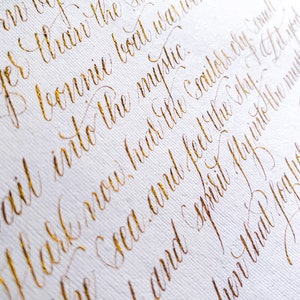 than the
bonnie boat was
sail into the mystic.
Hark now, hear the sailors cry, smell
the sea and feel the sky. Let
and spirit fly into the
when that